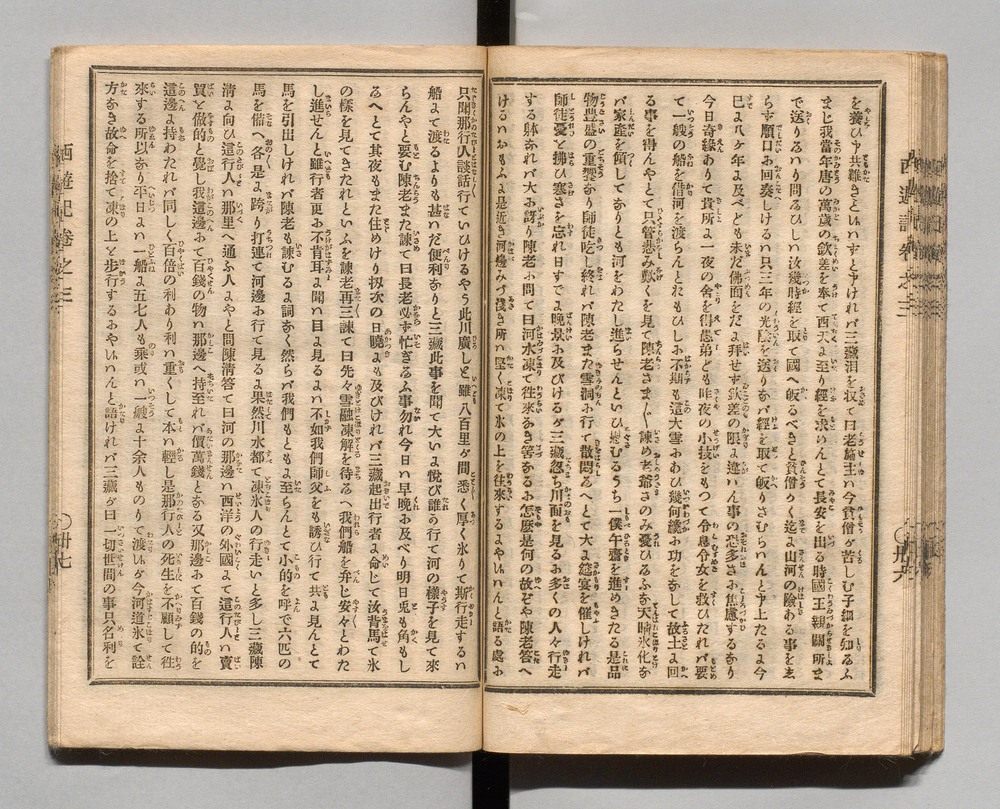 を養ひヤ共難きといハすとヤけれバ三藏泪を収て曰老施主ハ今貧僧が苦しむ子細を知るふ
まじ我當年唐の萬歳の欽差を奉て西天よ至り經を求めんとて長安を出る時國王親關所ま
で送りるハり問るひしハ汝幾時經を取て國へ皈るべきと貧僧かく迄よ山河の險ある事をゑ
らず順口お回奏しけるハ只三年の光陰を送りなバ經を取て皈りさむらハんとヤ上たるよ今
已よ八ケ年よ及べども未だ佛面をだよ拜せず欽差の限よ違ハん事の恐多さお焦慮するなり
今日奇緣ありて貴所よ一夜の舍を得愚弟ども昨夜の小技をもつて令息令女を救ひたれバ要
て一艘の船を借河を渡らんとおもひしお不期も這大雪おあひ幾何纔お功をなして故土よ回
る事を得んやとて只管悲み歎くを見て陳老さま〲諫め老爺さのみ憂ひるふな天晴氷化な
バ家產を傾してなりとも河をわたし進らせんといひ慰むるうち一僕午齋を進めきたる是品
物豐盛の重饗なり師徒吃し終れバ陳老また雪洞お行て散悶るへとて大よ筵宴を催しければ
師徒憂と拂ひ寒さを忘れ日すでよ晩景お及びけるが三藏忽ち川面を見るお多くの人々行走
する躰なれバ大お訝り陳老お問て曰河水凍て往來なき筈なるお怎麽是何の故ぞや陳老答へ
けるハおもふよ是近き河邊みづ淺き所ハ堅く凍て氷の上を往來するよやハんと語る處お
西遊記卷之三 〇卅六
只聞那行人談話行ていひけるやう此川廣しと雖八百里が間悉く厚く氷りて斯行走するハ
船よて渡るよりも甚だ便利なりと三藏此事を聞て大いよ悅び誰か行て河の樣子を見て來
らんやと要む陳老また諫て曰長老必ず忙ぎるふ事勿れ今日ハ早晚お及べり明日兎も角もし
るへとて其夜もまた住めけり扨次の日曉よも及びけれバ三藏起出行者よ命じて汝背馬て氷
の樣を見てきたれといふを諫老再三諫て曰先々雪融凍解を待るへ我們船を弁じ安々とわた
し進ぜんと雖行者更お不肯耳よ聞ハ目よ見るよハ不如我們師父をも誘ひ行て共よ見んとて
馬を引出しけれバ陳老も諫むるよ詞なく然らバ我們もともよ至らんとて小的を呼で六匹の
馬を備へ各是よ跨り打連て河邊お行て見るよ果然川水都て凍氷人の行走いと多し三藏陳
清よ向ひ這行人ハ那里へ通ふ人よやと問陳清答て曰河の那邊ハ西洋の外國よて這行人ハ賣
買と做的と覺し我這邊おて百錢の物ハ那邊へ持至れバ價萬錢となる又那邊おて百錢の的を
這邊よ持わたれバ同しく百倍の利あり利ハ重くして本ハ輕し是那行人の死生を不顧して往
來する所以なり平日よハ一船よ五七人も乘或ハ一艘よ十余人ものりて渡しハが今河道氷て詮
方なき故命を捨て凍の上と步行するおやハんと語けれバ三藏が曰一切世間の事只名利を
西遊記卷之三 〇卅七